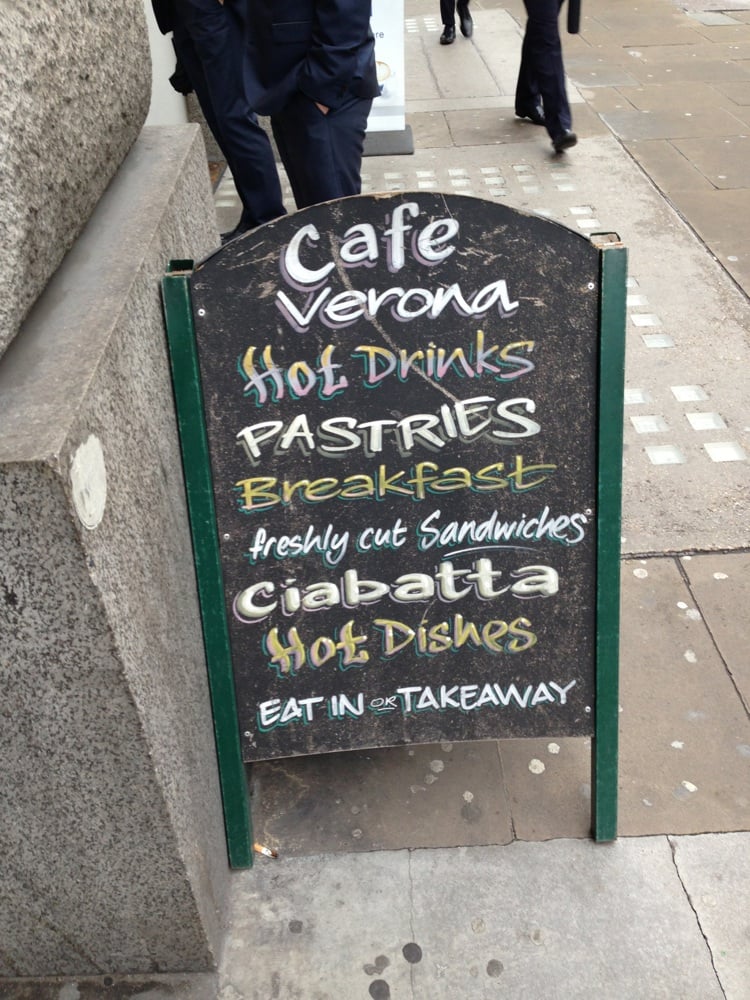 Cafe
Verona
Hot Drinks
PASTRIES
Breakfast
freshly cut Sandwiches
Ciabatta
Hot Dishes
EAT IN OR TAKEAWAY